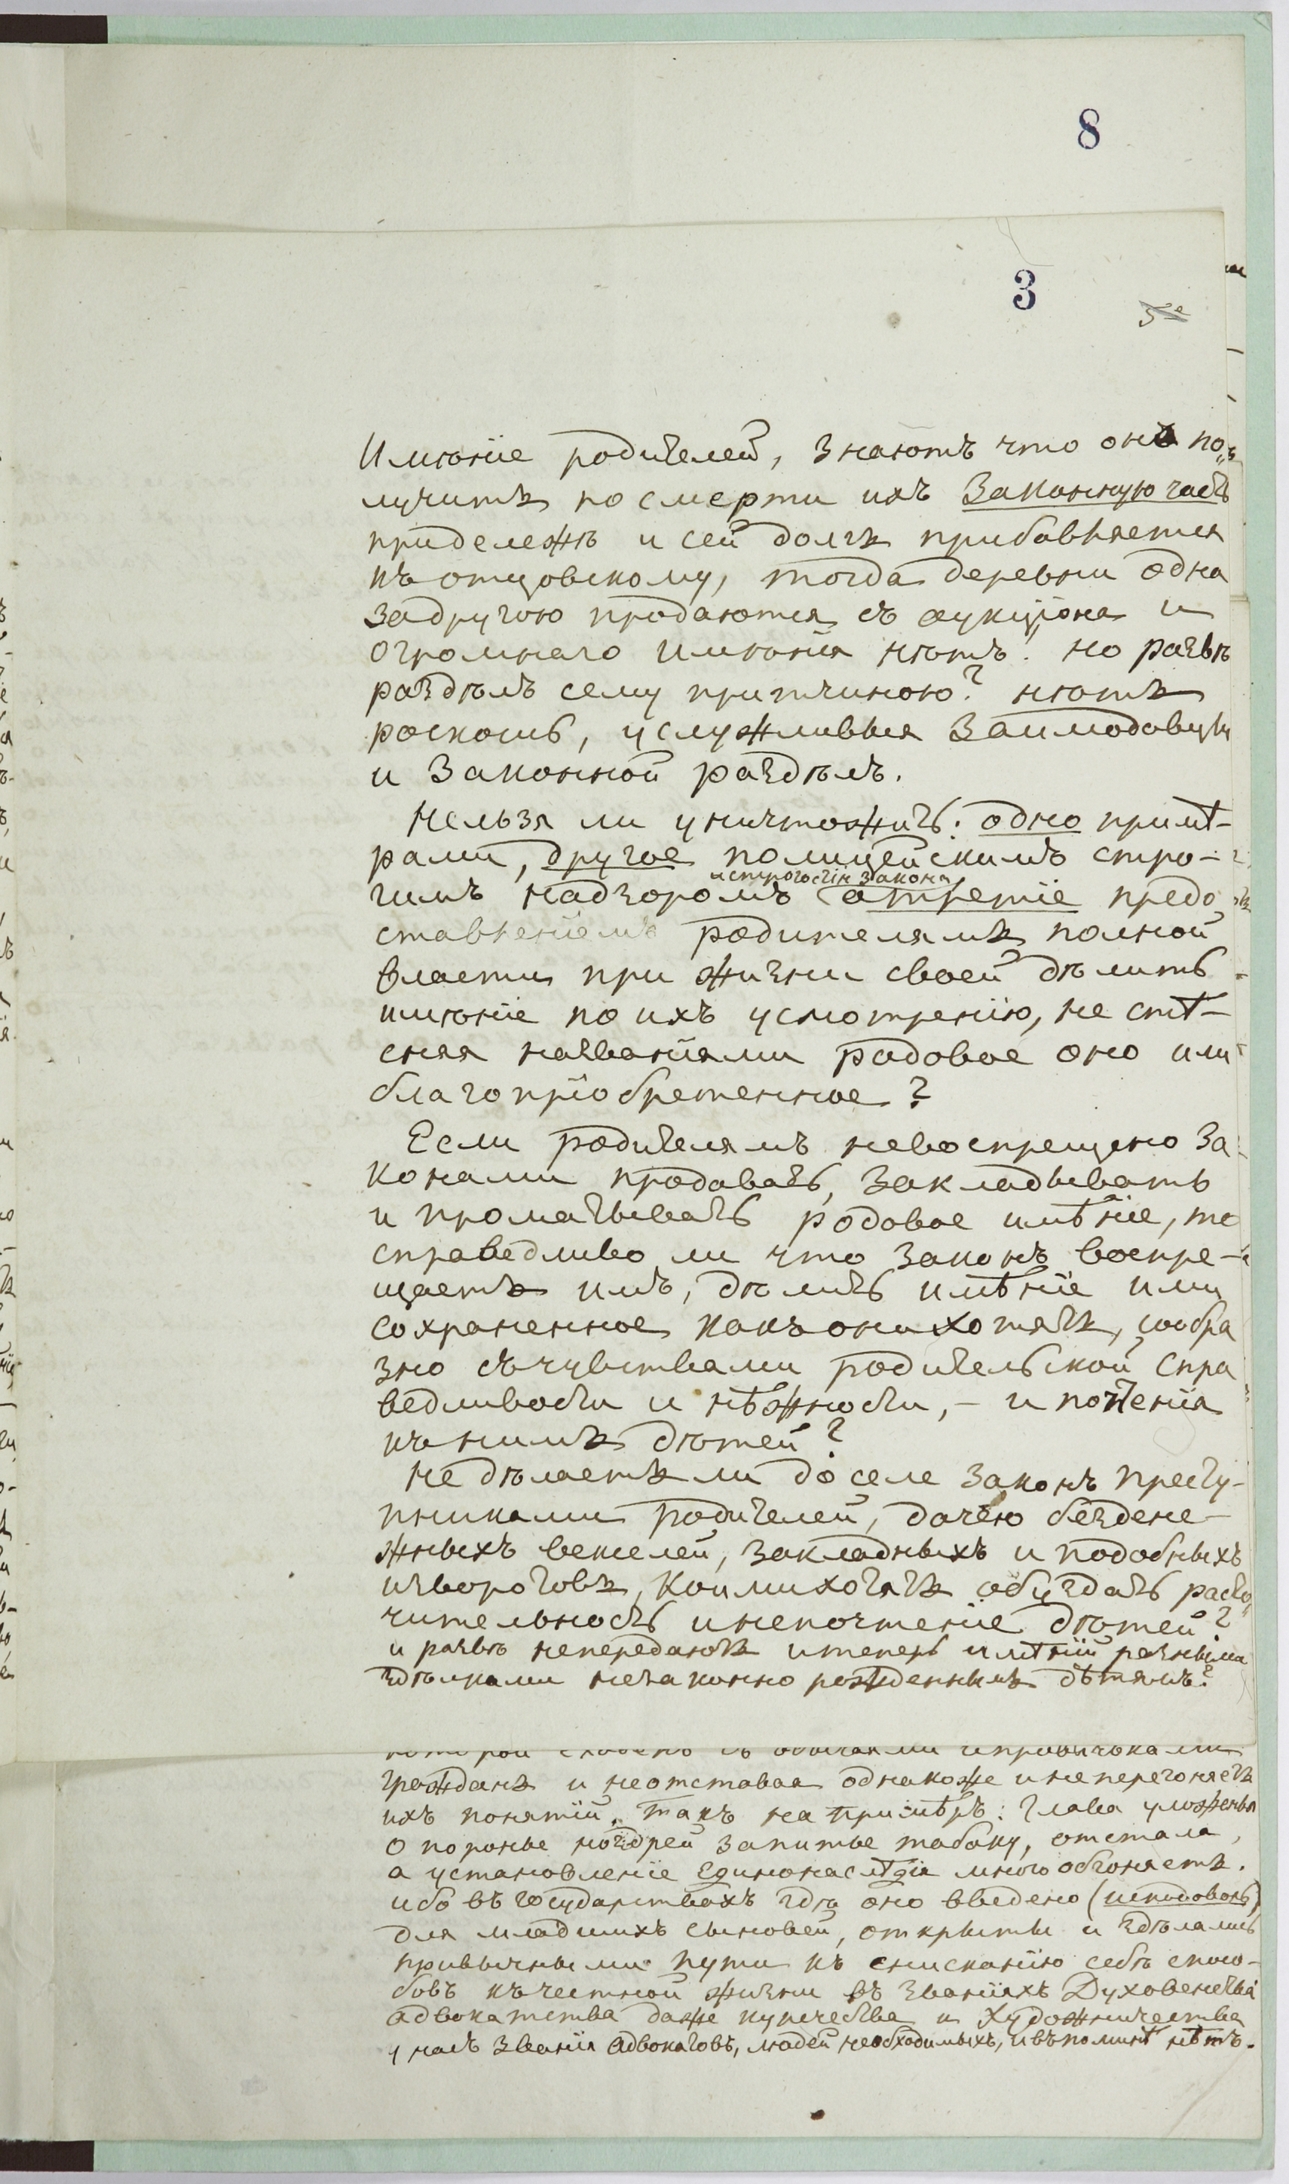 8
3
5<sup>е</sup>
Имѣніе родителей, знаютъ что онѣ по„
лучитъ по смерти ихъ Законную часть
придележѣ и сей долгъ прибавляется
къ отцовскому, тогда деревни одна
задругою продаются съ аукціона и
огромнаго Имѣнія нѣтъ! но развѣ
раздѣлъ сему притчиною? нѣтъ
роскошь, услужливыя Заимодавцы
и Законной раздѣлъ.
Нельзя ли уничтожить: одно примѣ-
рами, другое полицейскимъ стро-
и строгостію закона
гимъ надзоромъ а третіе предо
ставленіемъ родителямъ полной
власти при жизни своей дѣлить
имѣніе по ихъ усмотренію, не стѣ-
сняя названіями родовое оно или
благопріобретенное?
Если родителямъ невоспрещено За-
конами продавать, закладывать
и проматывать родовое имѣніе, то
справедливо ли что законъ воспре-
щаетъ имъ, дѣлить имѣніе ими
сохраненное какъ они хотятъ, сообра
зно съ чувствами родительской спра
ведливости и нѣжности, - и почтенія
къ нимъ дѣтей?
Не дѣлаетъ ли доселе законъ престу-
пниками родителей, дачею безденe-
жныхъ векселей, закладныхъ и подобныхъ
изворотовъ, коими хотятъ обуздать расто„
чительность и непочтеніе дѣтей?
и развѣ непередаютъ и теперь имѣній разными
здѣлками незаконно рожденнымъ дѣтямъ?
которой сходенъ съ обычаями и привычками
гражданъ и неотставая однакоже и неперегоняетъ
ихъ понятій. Такъ на примѣръ: Глава уложенья
о поронье ноздрей запитье табаку, отстала,
а установленіе Единонаслѣдія много обгоняетъ.
ибо въ государствахъ гдѣ оно введено (исподоволь)
для младшихъ сыновей, открыты и здѣлались
привычными пути къ снисканію себѣ спосо-
бовъ къ честной жизни въ званіяхъ Духовенства
адвокатства даже купечества и Художничества
у насъ званія Адвокатовъ, людей необходимыхъ, и въ поминѣ нѣтъ.